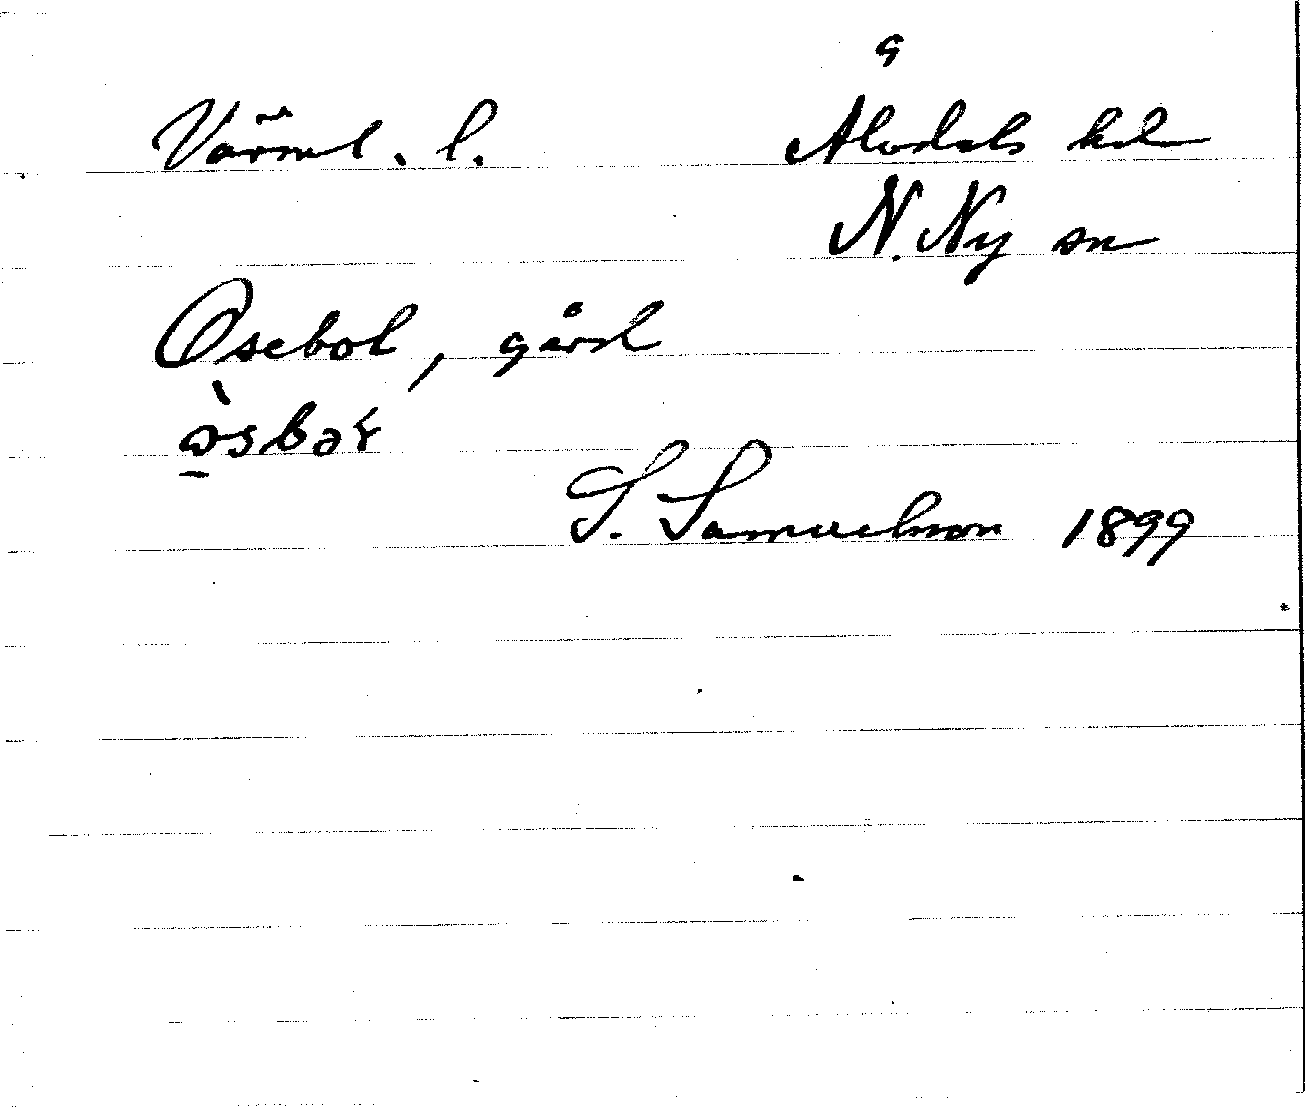 9
Värml. l. Älvdals hd
N. Ny sn
Osebol, gård
S. Samuelsson 1899